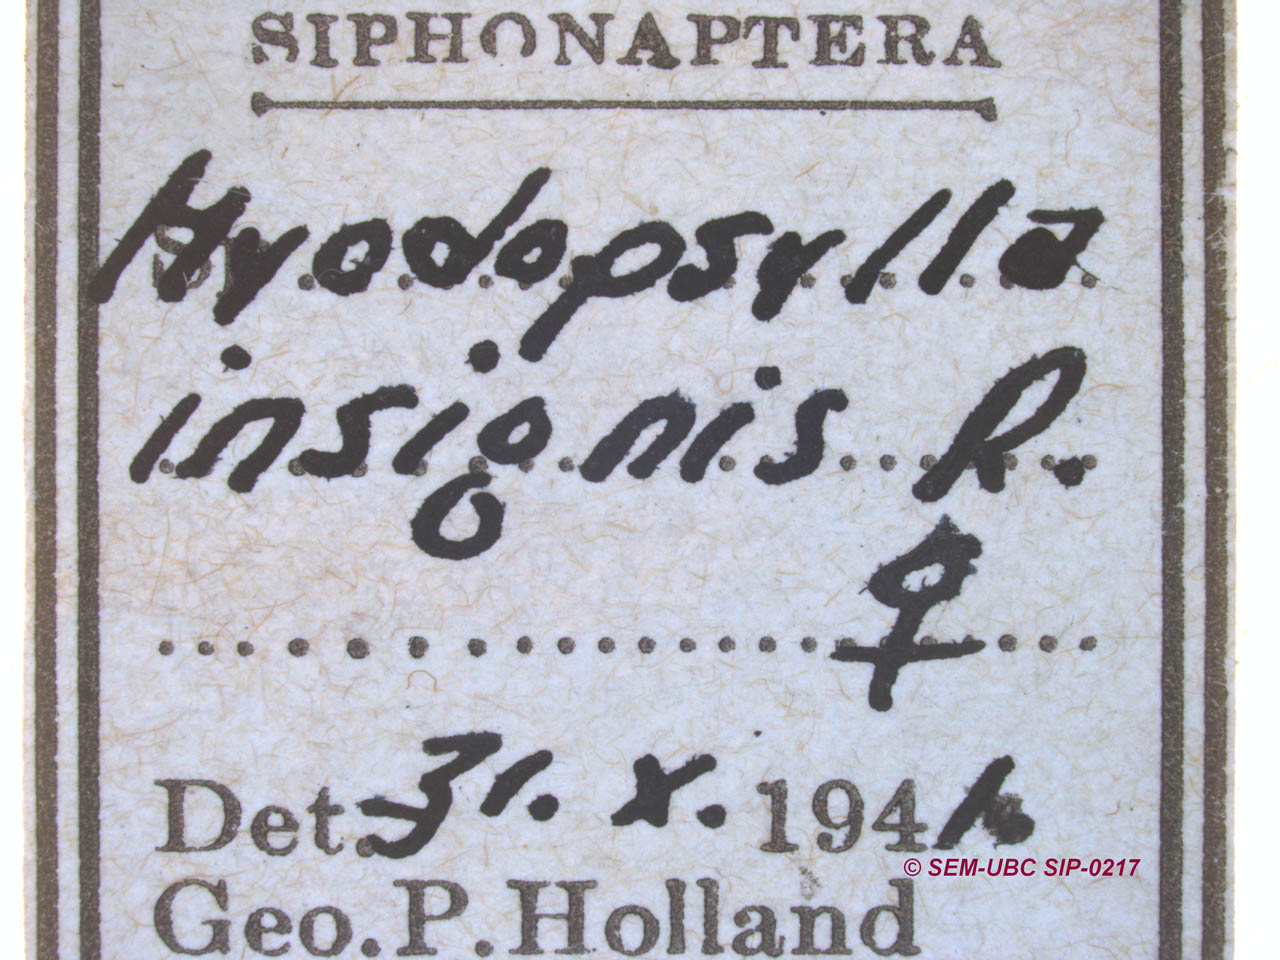 SIPHONAPTERA
Hyodopsylla
insignis R.
♀
Det. 31. X. 1941.
Geo. P. Holland
© SEM-UBC SIP-0217